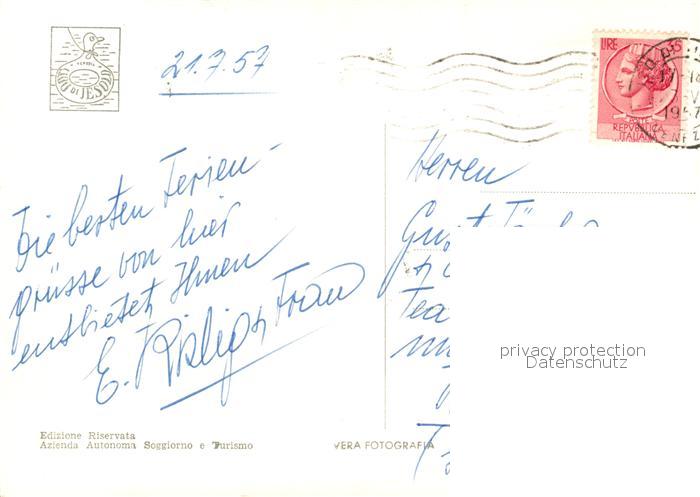 LIDO DI JESOLO
VENEZIA
21.7.57
LIRE 35
POSTE
REPVBBLICA
ITALIANA
1957
Die besten Ferien-
grüsse von hier
entbietet Ihnen
E. & Frau
Herren
Gust
Tea
privacy protection
Datenschutz
Edizione Riservata
Azienda Autonoma Soggiorno e Turismo
VERA FOTOGRAFIA